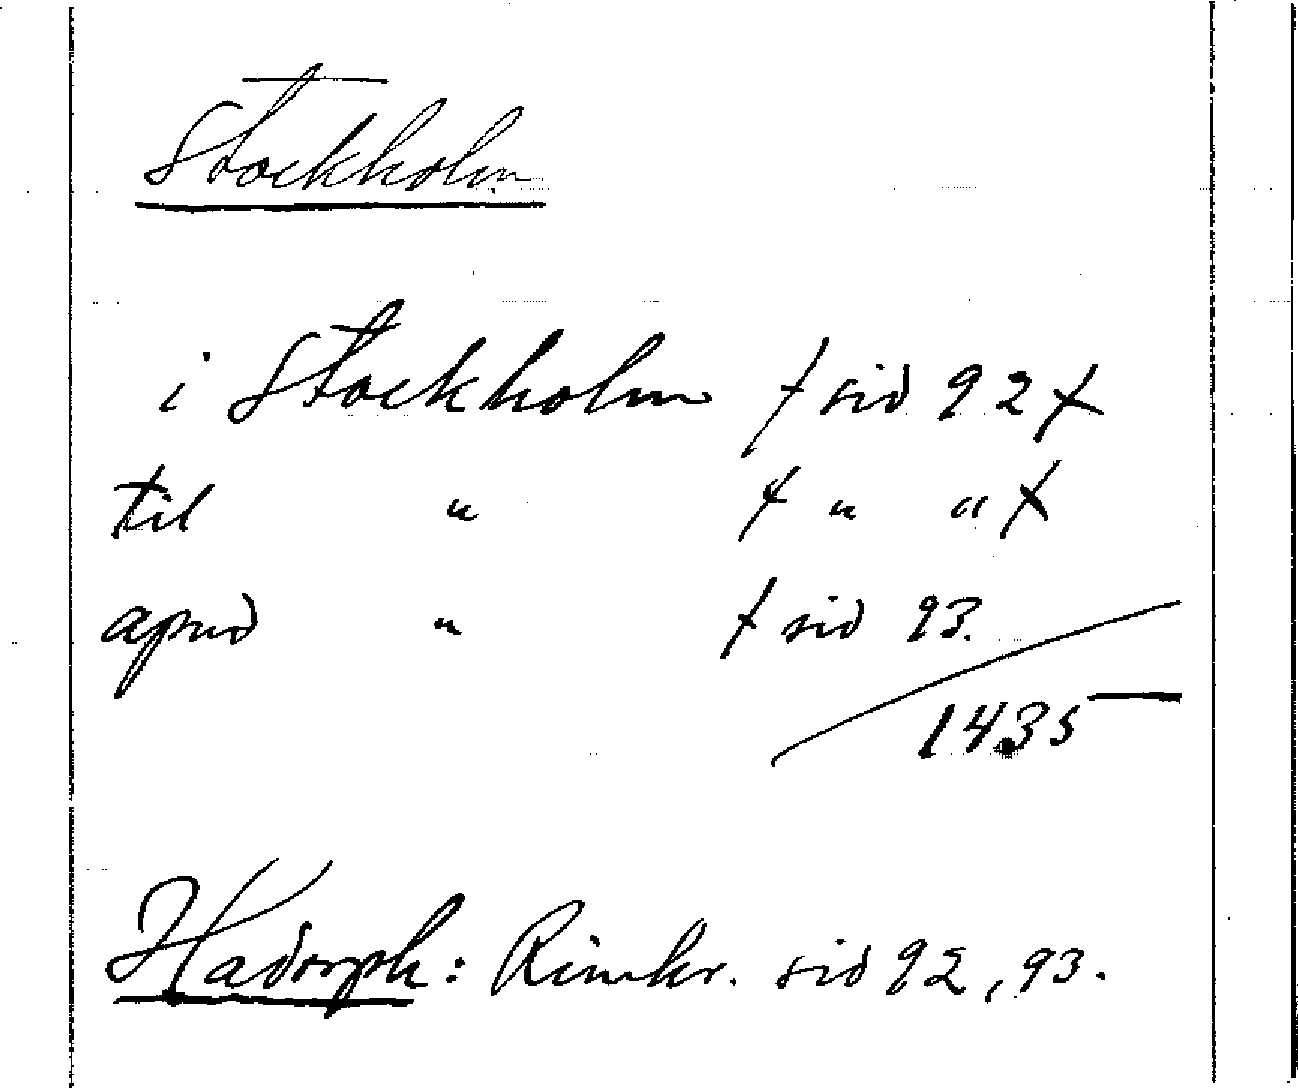 Stockholm
i Stockholm / sid 92 /
til " / " " /
apud " / sid 93.
1435
Hadorph: Rimkr. sid 92, 93.